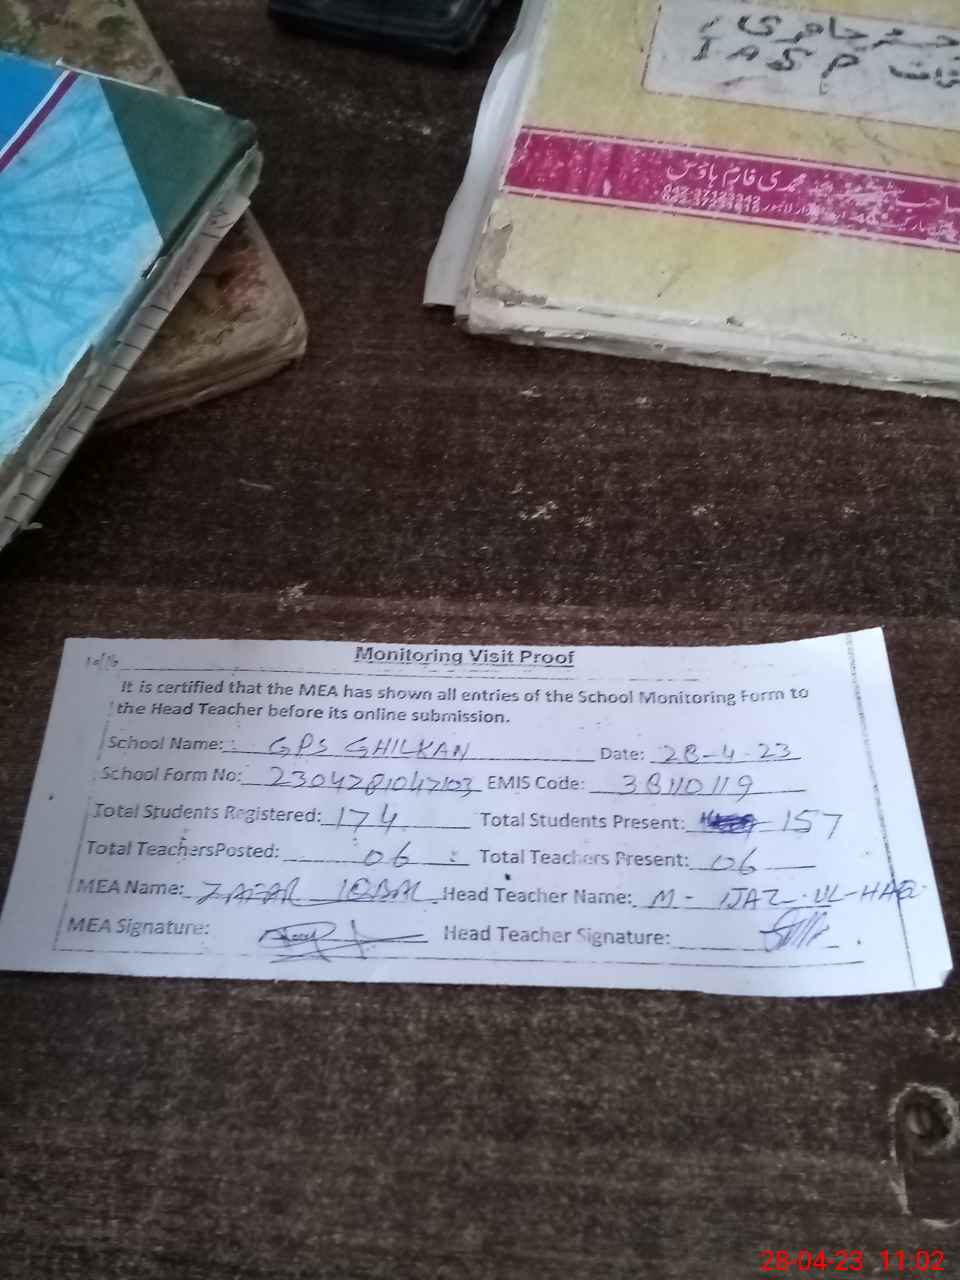 محمدی فارم ہاؤس
042-37123342
Monitoring Visit Proof
It is certified that the MEA has shown all entries of the School Monitoring Form to
the Head Teacher before its online submission.
School Name: GPS GHILKAN Date: 28-4-23
School Form No: 2304281047103 EMIS Code: 38110119
Total Students Registered: 174 Total Students Present: 157
Total TeachersPosted: 06 Total Teachers Present: 06
MEA Name: ZAFAR IQBAL Head Teacher Name: M- IJAZ-UL-HAQ
MEA Signature: Head Teacher Signature:
28-04-23 11:02